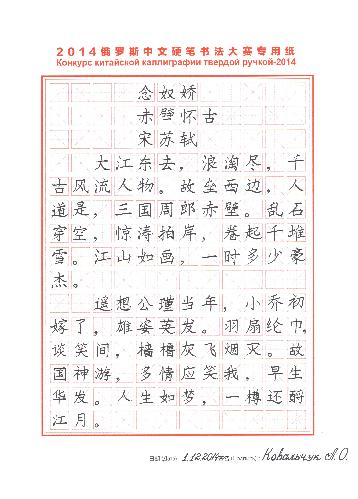 2014俄罗斯中文硬笔书法大赛专用纸
Конкурс китайской каллиграфии твердой ручкой-2014
念奴娇
赤壁怀古
宋苏轼
大江东去，浪淘尽，千
古风流人物。故垒西边，人
道是，三国周郎赤壁。乱石
穿空，惊涛拍岸，卷起千堆
雪。江山如画，一时多少豪
杰。
遥想公瑾当年，小乔初
嫁了，雄姿英发。羽扇纶巾，
谈笑间，樯橹灰飞烟灭。故
国神游，多情应笑我，早生
华发。人生如梦，一樽还酹
江月。
1.12.2014 Ковальчук А.О.